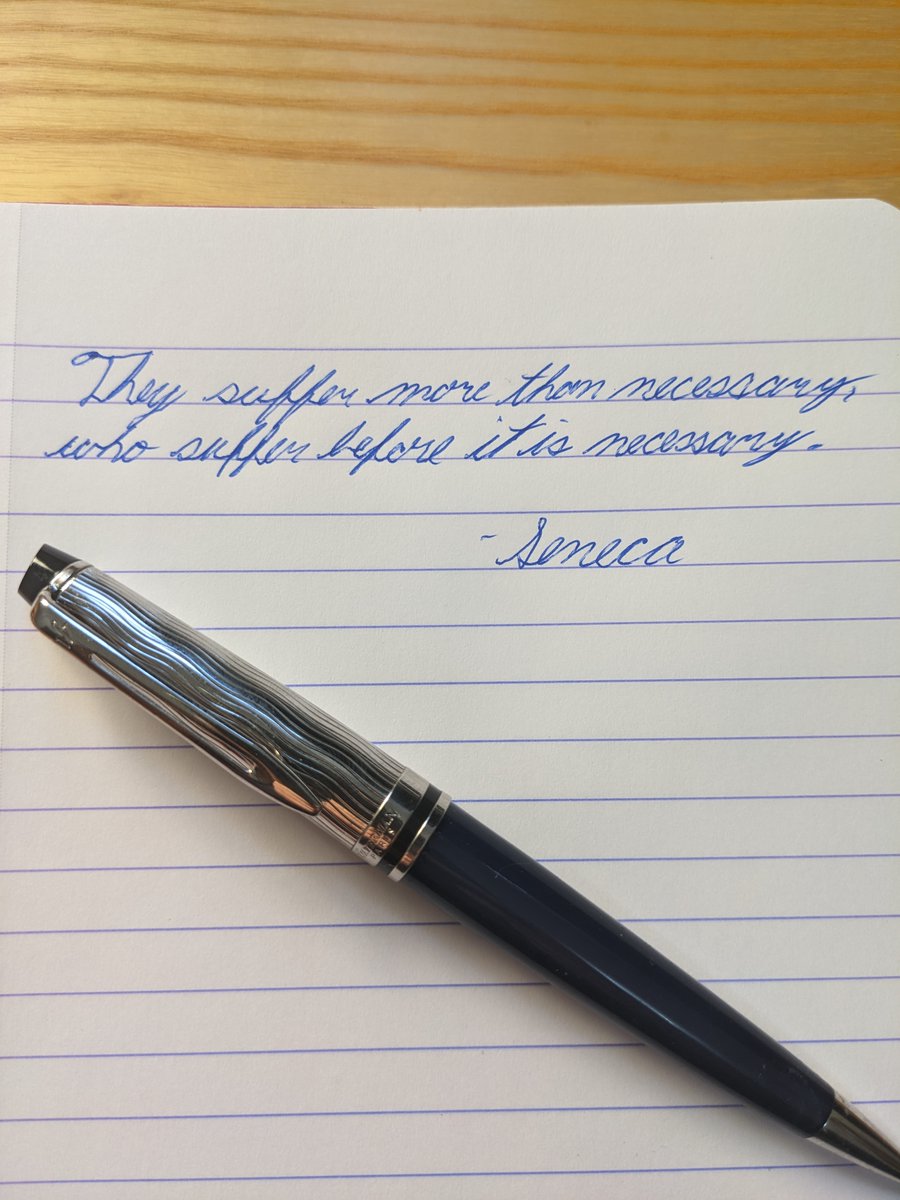 They suffer more than necessary,
who suffer before it is necessary.
- Seneca
WATERMAN
PARIS